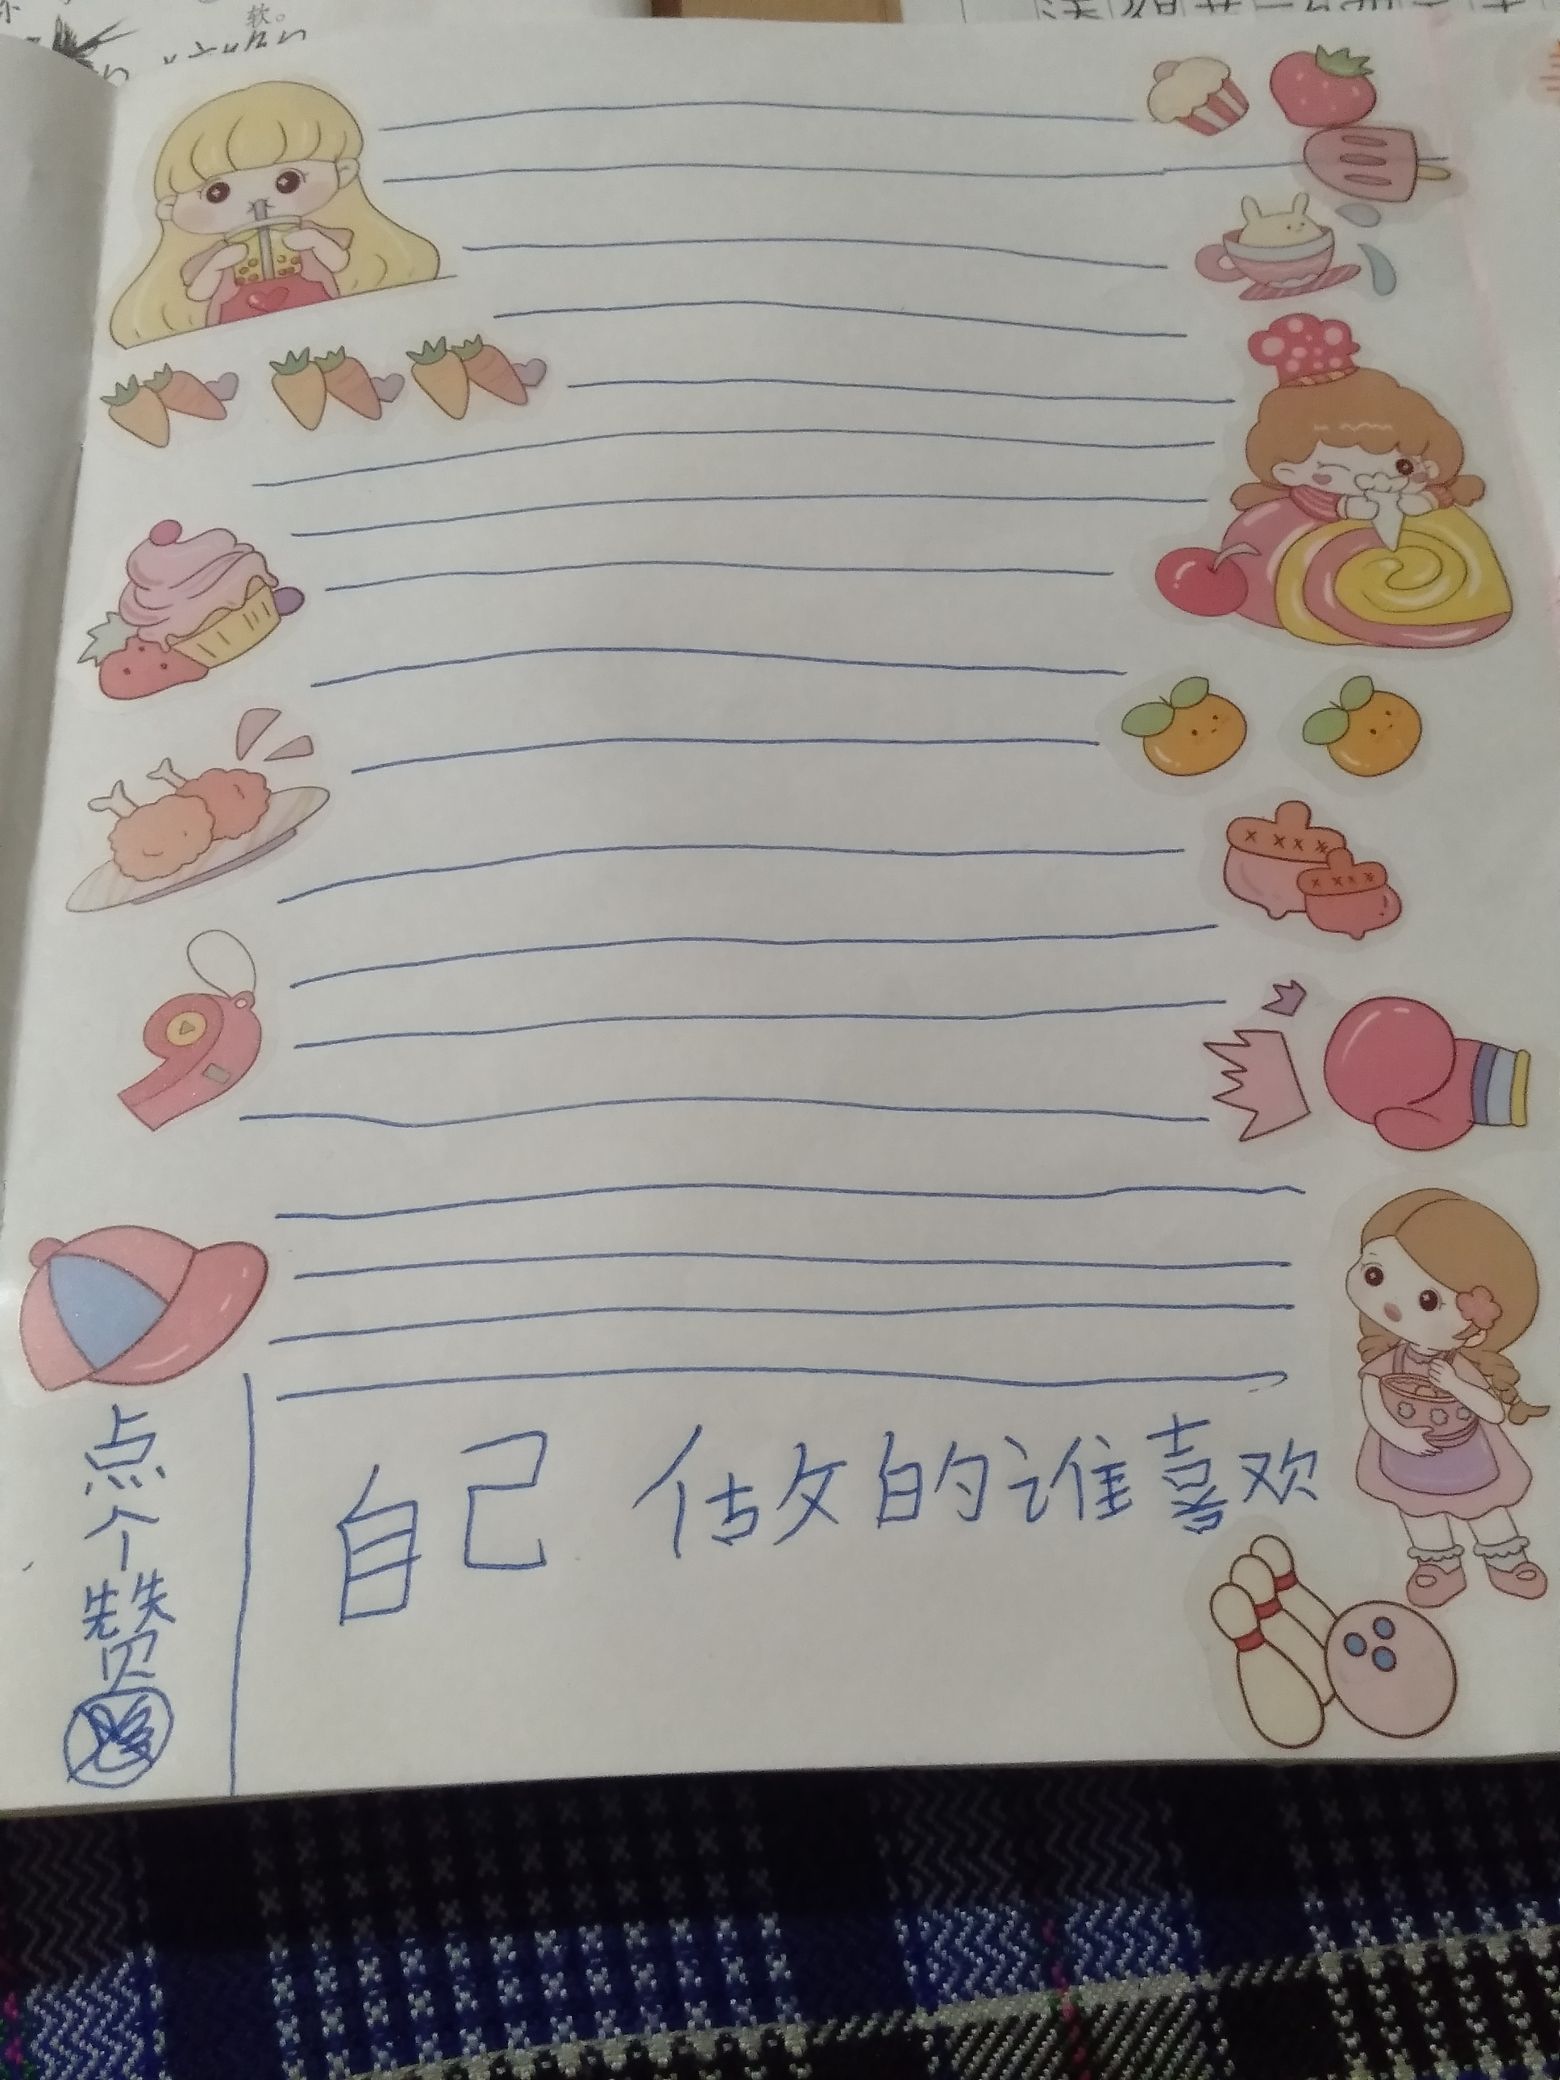 软。
点个赞
自己 做的谁喜欢